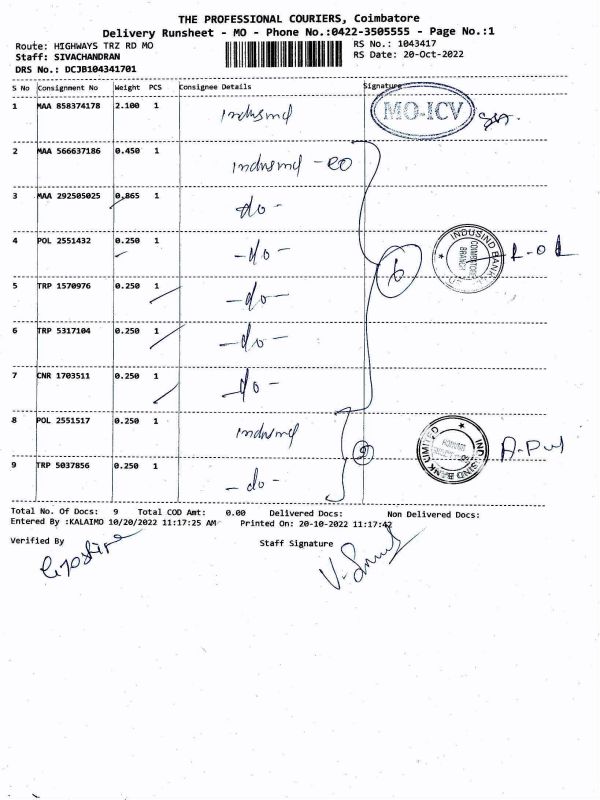 THE PROFESSIONAL COURIERS, Coimbatore
Delivery Runsheet - MO - Phone No.:0422-3505555 - Page No.:1
Route: HIGHWAYS TRZ RD MO RS No.: 1043417
Staff: SIVACHANDRAN RS Date: 20-Oct-2022
DRS No.: DCJB104341701
S No Consignment No Weight PCS Consignee Details Signature
1 MAA 858374178 2.100 1 indusind MO-ICV
2 MAA 566637186 0.450 1 indusind
3 MAA 292505025 0.865 1 do -
4 POL 2551432 0.250 1 - do - INDUSIND BANK COIMBATORE BRANCH
5 TRP 1570976 0.250 1 - do -
6 TRP 5317104 0.250 1 - do -
7 CNR 1703511 0.250 1 do - 6
8 POL 2551517 0.250 1 indusind INDUSIND BANK LIMITED
9 TRP 5037856 0.250 1 - do - 2
Total No. Of Docs: 9 Total COD Amt: 0.00 Delivered Docs: Non Delivered Docs:
Entered By :KALAIMO 10/20/2022 11:17:25 AM Printed On: 20-10-2022 11:17:42
Verified By Staff Signature